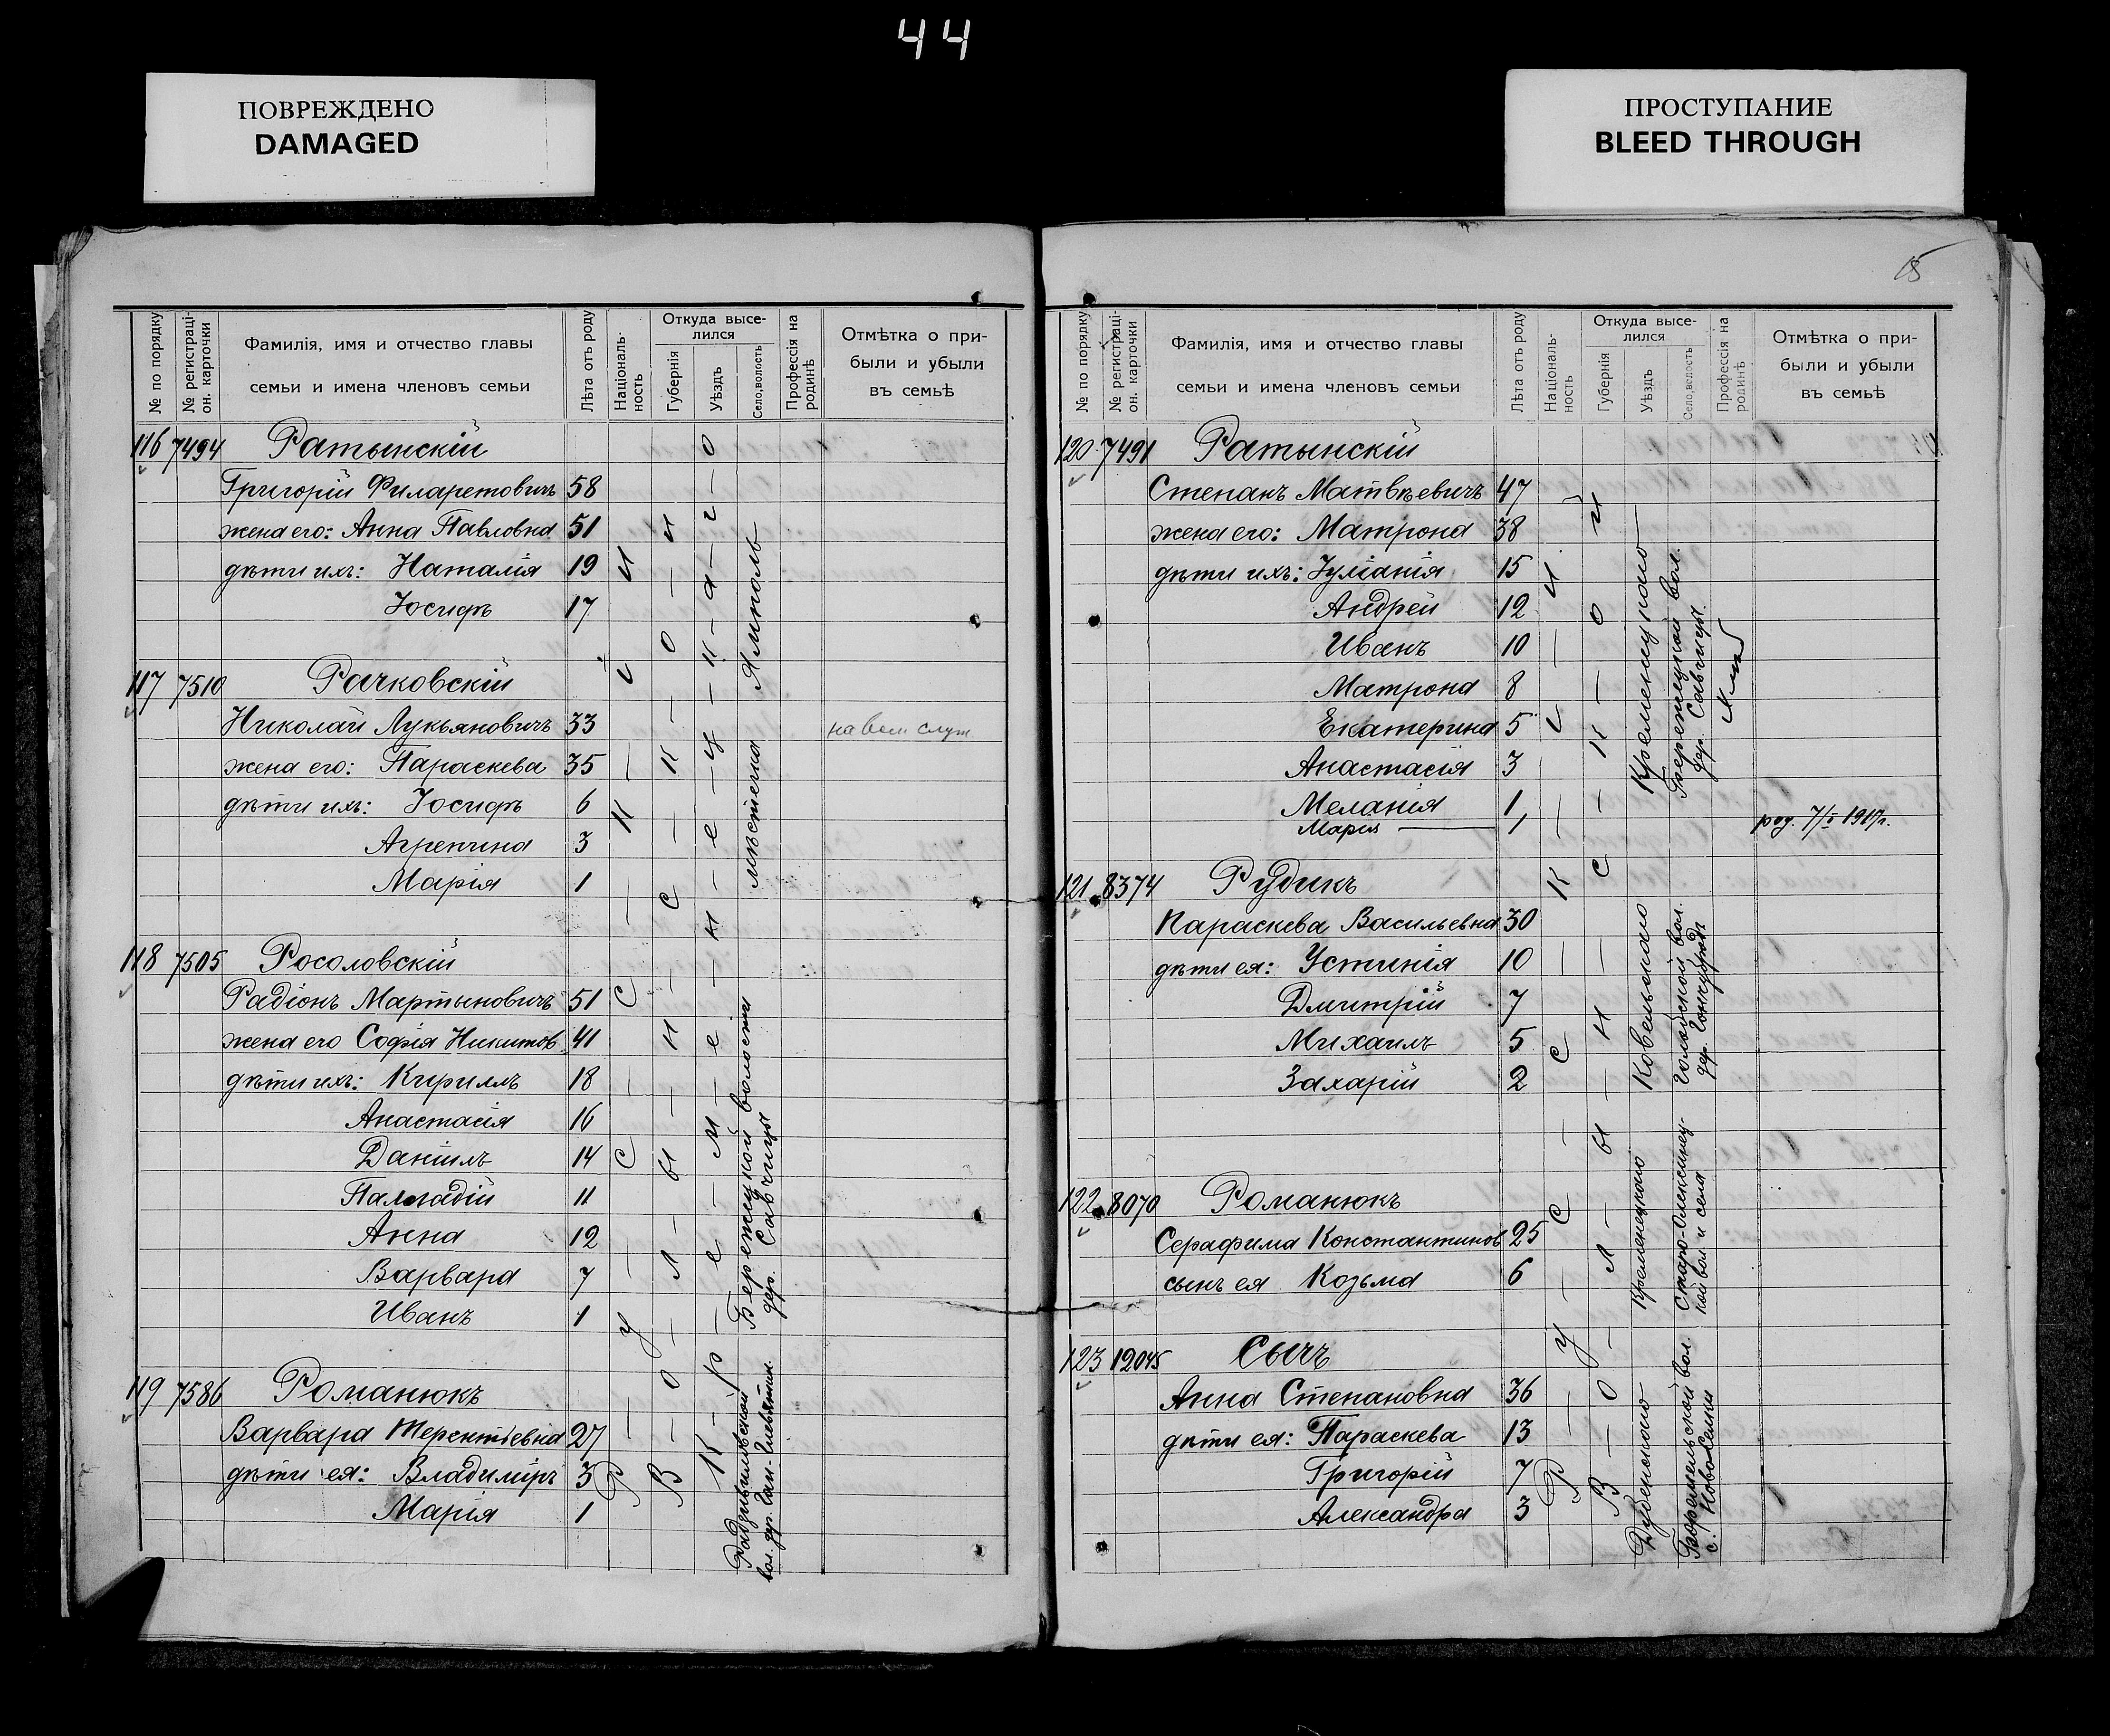 44
ПОВРЕЖДЕНО
DAMAGED
ПРОСТУПАНИЕ
BLEED THROUGH
№ по порядку
№ регистраці-
он. карточки
Фамилія, имя и отчество главы
семьи и имена членовъ семьи
Лѣта отъ роду
Націоналъ-
ность
Откуда высе-
лился
Губернія
Уѣздъ
Село, волость
Профессія на
родинѣ
Отмѣтка о при-
были и убыли
въ семьѣ
116 7494 Ратынскій
Григорій Филаретовичъ 58
жена его: Анна Павловна 51
дѣти ихъ: Наталія 19
Іосифъ 17
117 7510 Рачковскій
Николай Лукьяновичъ 33
жена его: Параскева 35
дѣти ихъ: Іосифъ 6
Агрепина 3
Марія 1
118 7505 Росоловскій
Радіонъ Мартыновичъ 51
жена его Софія Никитов. 41
дѣти ихъ: Кириллъ 18
Анастасія 16
Даніилъ 14
Палладій 11
Анна 12
Варвара 7
Иванъ 1
119 7586 Романюкъ
Варвара Терентьевна 27
дѣти ея: Владиміръ 3
Марія 1
Р у с с к і й
В о л ы н с к о й
К р е м е н е ц к а г о
мѣстечка Ямполь
Бережецкой волости
дер. Савчицы
Радзивиловской
15
№ по порядку
№ регистраці-
он. карточки
Фамилія, имя и отчество главы
семьи и имена членовъ семьи
Лѣта отъ роду
Націоналъ-
ность
Откуда высе-
лился
Губернія
Уѣздъ
Село, волость
Профессія на
родинѣ
Отмѣтка о при-
были и убыли
въ семьѣ
120 7491 Ратынскій
Степанъ Матвѣевичъ 47
жена его: Матрона 38
дѣти ихъ: Іуліанія 15
Андрей 12
Иванъ 10
Матрона 8
Екатерина 5
Анастасія 3
Меланія 1
Марія 1 род. 7/I 1917г.
121 8374 Рудикъ
Параскева Васильевна 30
дѣти ея: Устинія 10
Дмитрій 7
Михаилъ 5
Захарій 2
122 8070 Романюкъ
Серафима Константинов. 25
сынъ ея Козьма 6
123 12045 Сычъ
Анна Степановна 36
дѣти ея: Параскева 13
Григорій 7
Александра 3
Р у с с к і й
В о л ы н с к о й
Кременецкаго
Бережецкой вол.
дер. Савчицы
Ковельскаго
Голобской вол.
Кременецкаго
Старо-Олексинец-
кой вол и села
Дубенскаго